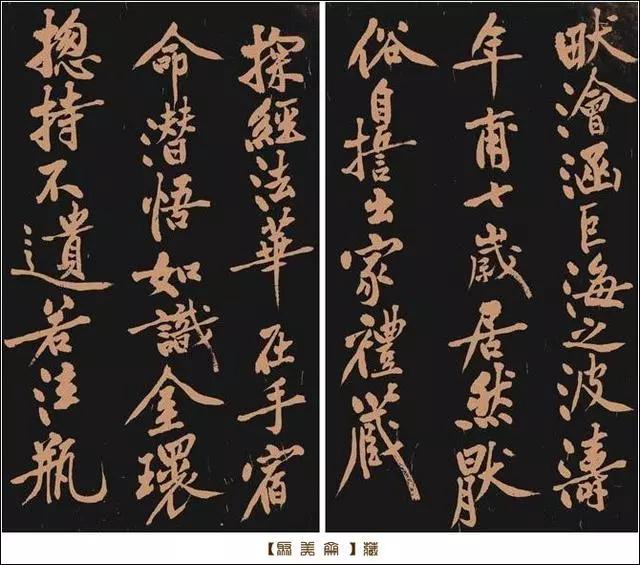 畎澮涵巨海之波濤
年甫七歲居然猒
俗自誓出家禮藏
探經法華在手宿
命潛悟如識金環
揔持不遺若注瓶